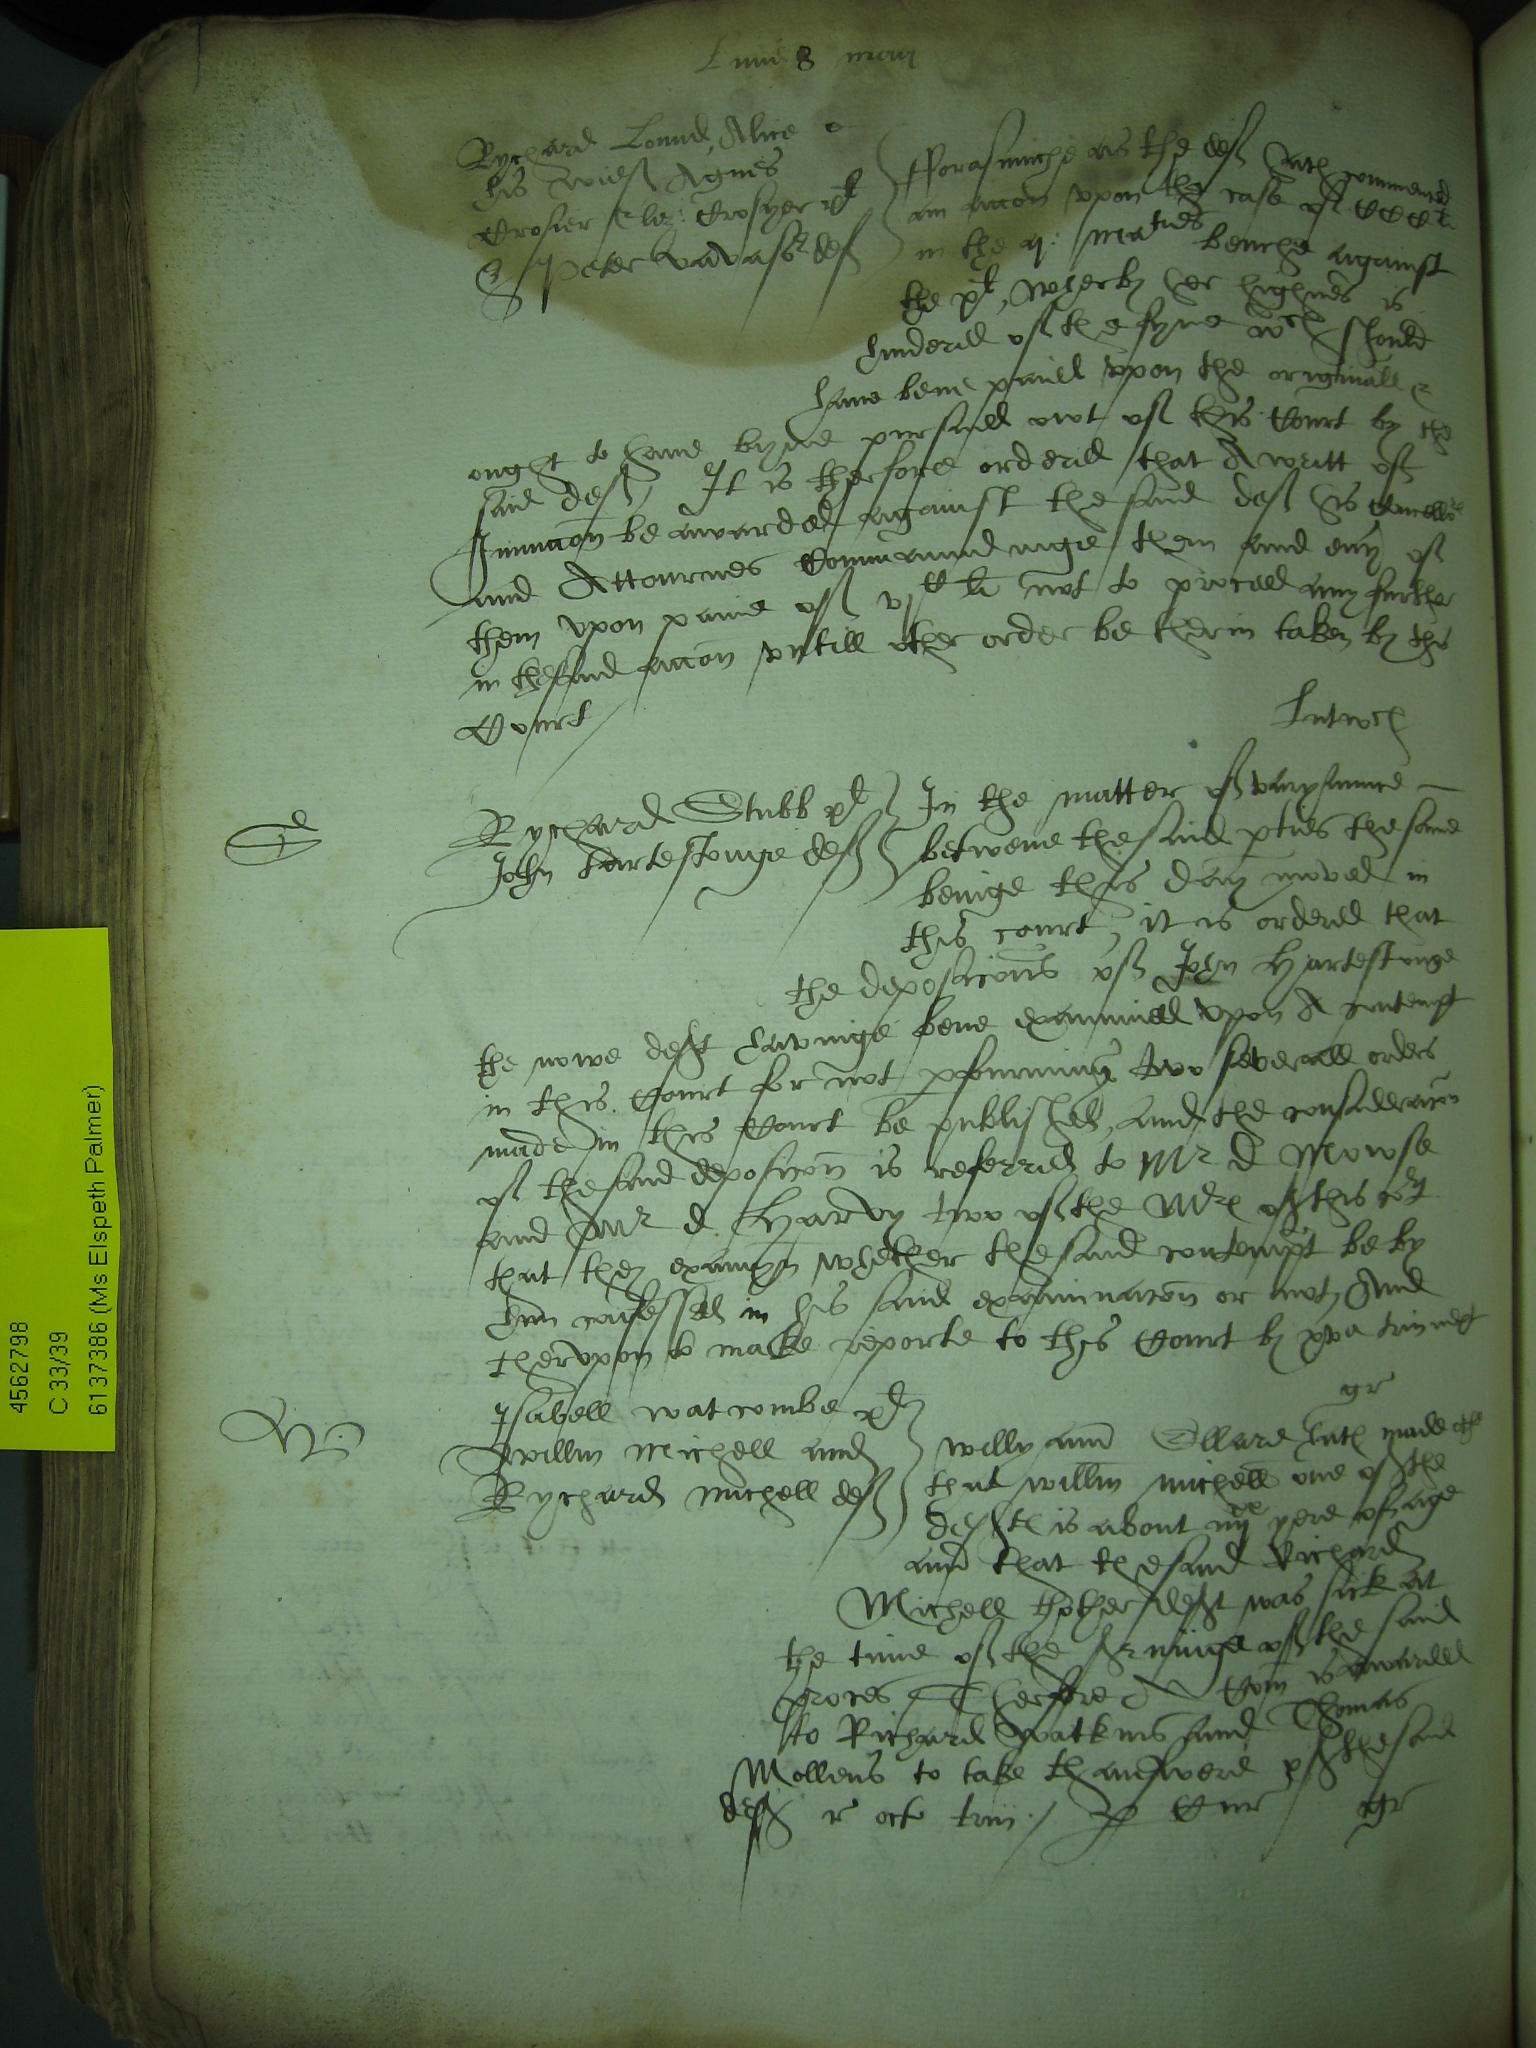 Lune 8 maii
Rychard Lound, Alice
his wief Agnes
Crosier & Eliz: Crosyer plt
Peter vavasor def
Fforasmuche as the def hath commenced
an accon vpon the case of CCC li
in the q: maties benche against
the plt, wherby her highnes is
hindered of the fyne wch should
have bene paied vpon the originall &
ought to haue byne pursued owt of this Court by the
said def, It is therfore ordered that A writt of
Iniunccon be awarded against the said def his Councellors
and Attournes Commaundinge them and euy of
them vpon paine of li not to proceed any further
in thesaid accon vntill other order be therin taken by this
Court
Rychard Stubb plt
John hartestonge def
In the matter of varyaunce
betwene the said pties the same
beinge this day moved in
this court, it is ordered that
the deposicons of John Hartestonge
the nowe deft havinge bene examined vpon A contempt
in this Court for not pfourming two severall orders
made in this Court be published, and the consideracon
of thesaid deposicon is referred to Mr D Mowse
and Mr D. Harvy two of the Mrs of this cort
that they examyn whether thesaid contempt be by
him confessed in his said examinacon or not, And
thervpon to make reporte to this Court by
gr
Isabell watcombe plt
Willm Michell and
Rychard michell def
Willyam Ellard hath made othe
that willm michell one of the
deftes is about iiijxx yere of age
and that thesaid Richard
Michell thother deft was sick at
the time of the servinge of the said
proces Therfore A Com is awarded
to Richard Watkins and Thomas
Mollens to take thanswere of thesaid
def r octo trin / p Cur gr
4562798
C 33/39
6137386 (Ms Elspeth Palmer)